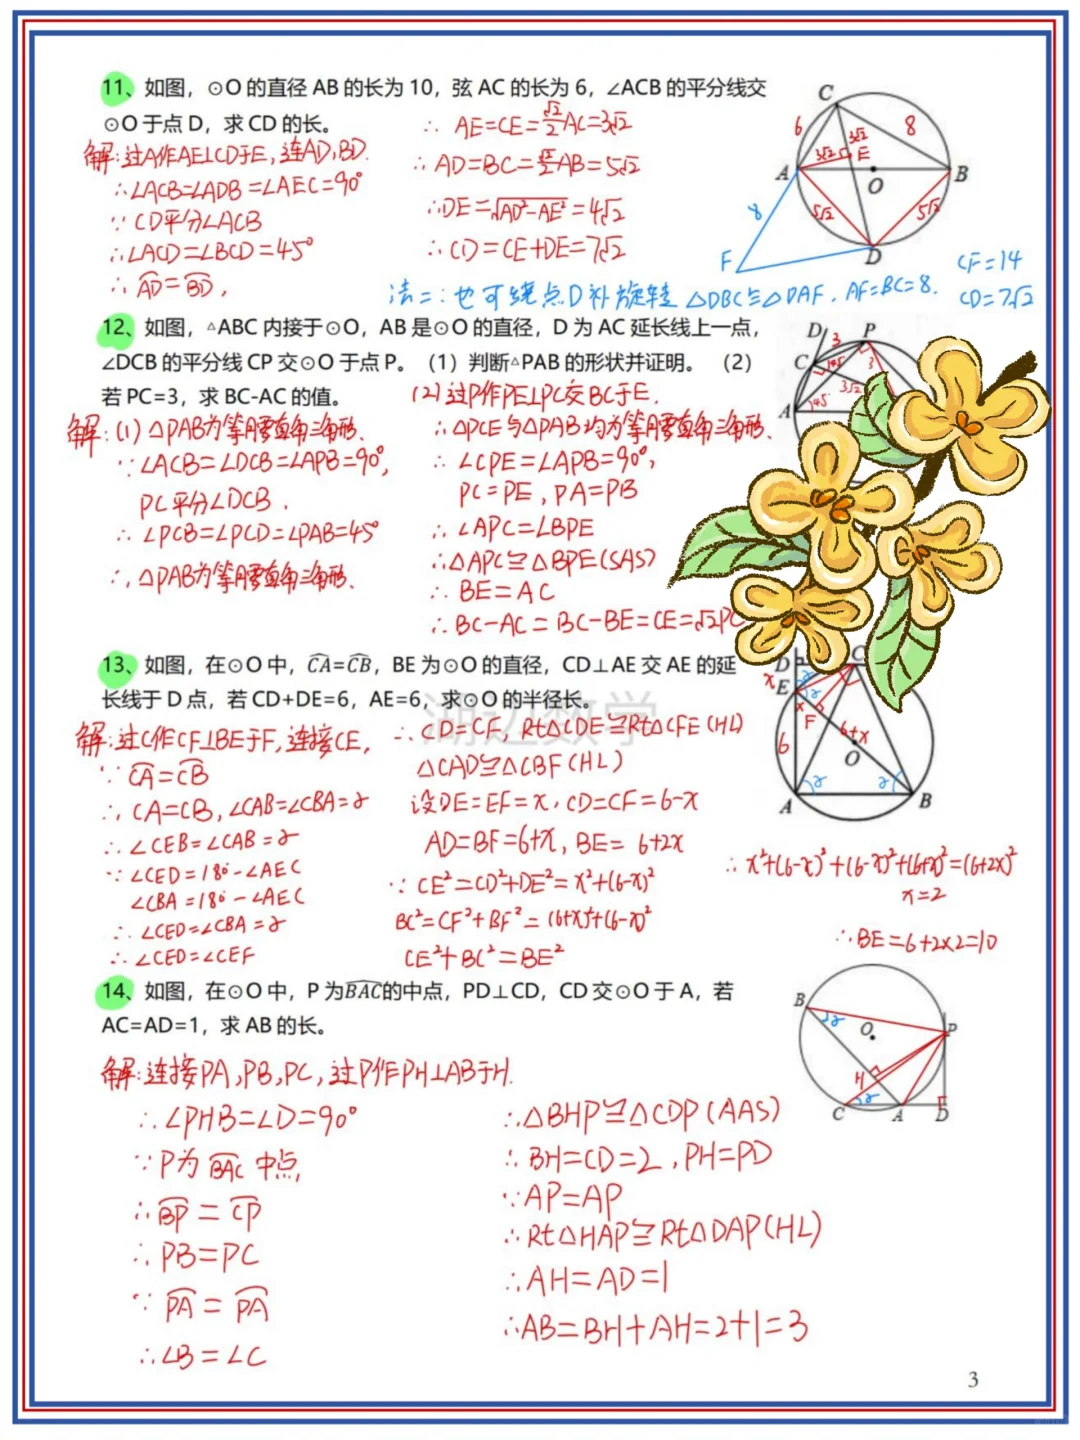 11、如图，⊙O 的直径 AB 的长为 10，弦 AC 的长为 6，∠ACB 的平分线交
⊙O 于点 D，求 CD 的长。
解:过A作AE⊥CD于E,连AD,BD.
∴∠ACB=∠ADB=∠AEC=90°
∵ CD平分∠ACB
∴∠ACD=∠BCD=45°
∴ A͡D=B͡D,
∴ AE=CE=√2/2AC=3√2
∴ AD=BC=√2/2AB=5√2
∴DE=√(AD²-AE²)=4√2
∴ CD=CE+DE=7√2
法二:也可绕点D补旋转 △DBC≌△DAF. AF=BC=8.
CF=14
CD=7√2
C
6
8
3√2
3√2
E
A
O
B
5√2
5√2
8
F
D
12、如图，△ABC 内接于⊙O，AB 是⊙O 的直径，D 为 AC 延长线上一点，
∠DCB 的平分线 CP 交⊙O 于点 P。（1）判断△PAB 的形状并证明。（2）
若 PC=3，求 BC-AC 的值。
解:(1) △PAB为等腰直角三角形.
∵∠ACB=∠DCB=∠APB=90°,
PC平分∠DCB.
∴ ∠PCB=∠PCD=∠PAB=45°
∴△PAB为等腰直角三角形.
(2)过P作PE⊥PC交BC于E.
∴△PCE与△PAB均为等腰直角三角形.
∴ ∠CPE=∠APB=90°,
PC=PE,PA=PB
∴ ∠APC=∠BPE
∴△APC≌△BPE(SAS)
∴ BE=AC
∴ BC-AC=BC-BE=CE=√2PC
D
P
3
C
45
3
3√2
A
45
13、如图，在⊙O 中，C͡A=C͡B，BE 为⊙O 的直径，CD⊥AE 交 AE 的延
长线于 D 点，若 CD+DE=6，AE=6，求⊙O 的半径长。
湖边数学
解:过C作CF⊥BE于F,连接CE,
∵ C͡A=C͡B
∴ CA=CB,∠CAB=∠CBA=2
∴ ∠CEB=∠CAB=2
∵ ∠CED=180°-∠AEC
∠CBA=180°-∠AEC
∴ ∠CED=∠CBA=2
∴ ∠CED=∠CEF
∴ CD=CF,Rt△CDE≌Rt△CFE(HL)
△CAD≌△CBF(HL)
设DE=EF=x.CD=CF=6-x
AD=BF=6+x,BE=6+2x
∵ CE²=CD²+DE²=x²+(6-x)²
BC²=CF²+BF²=(6+x)²+(6-x)²
CE²+BC²=BE²
∴ x²+(6-x)²+(6-x)²+(6+x)²=(6+2x)²
x=2
∴BE=6+2×2=10
D
C
x
E
x
F
6+x
6
O
A
2
2
B
14、如图，在⊙O 中，P 为B͡AC的中点，PD⊥CD，CD 交⊙O 于 A，若
AC=AD=1，求 AB 的长。
解:连接PA,PB,PC,过P作PH⊥AB于H.
∴∠PHB=∠D=90°
∵P为B͡AC中点,
∴B͡P=C͡P
∴PB=PC
∵ P͡A=P͡A
∴∠B=∠C
∴△BHP≌△CDP(AAS)
∴BH=CD=2,PH=PD
∵AP=AP
∴Rt△HAP≌Rt△DAP(HL)
∴AH=AD=1
∴AB=BH+AH=2+1=3
B
2
O
P
H
2
C
A
D
3